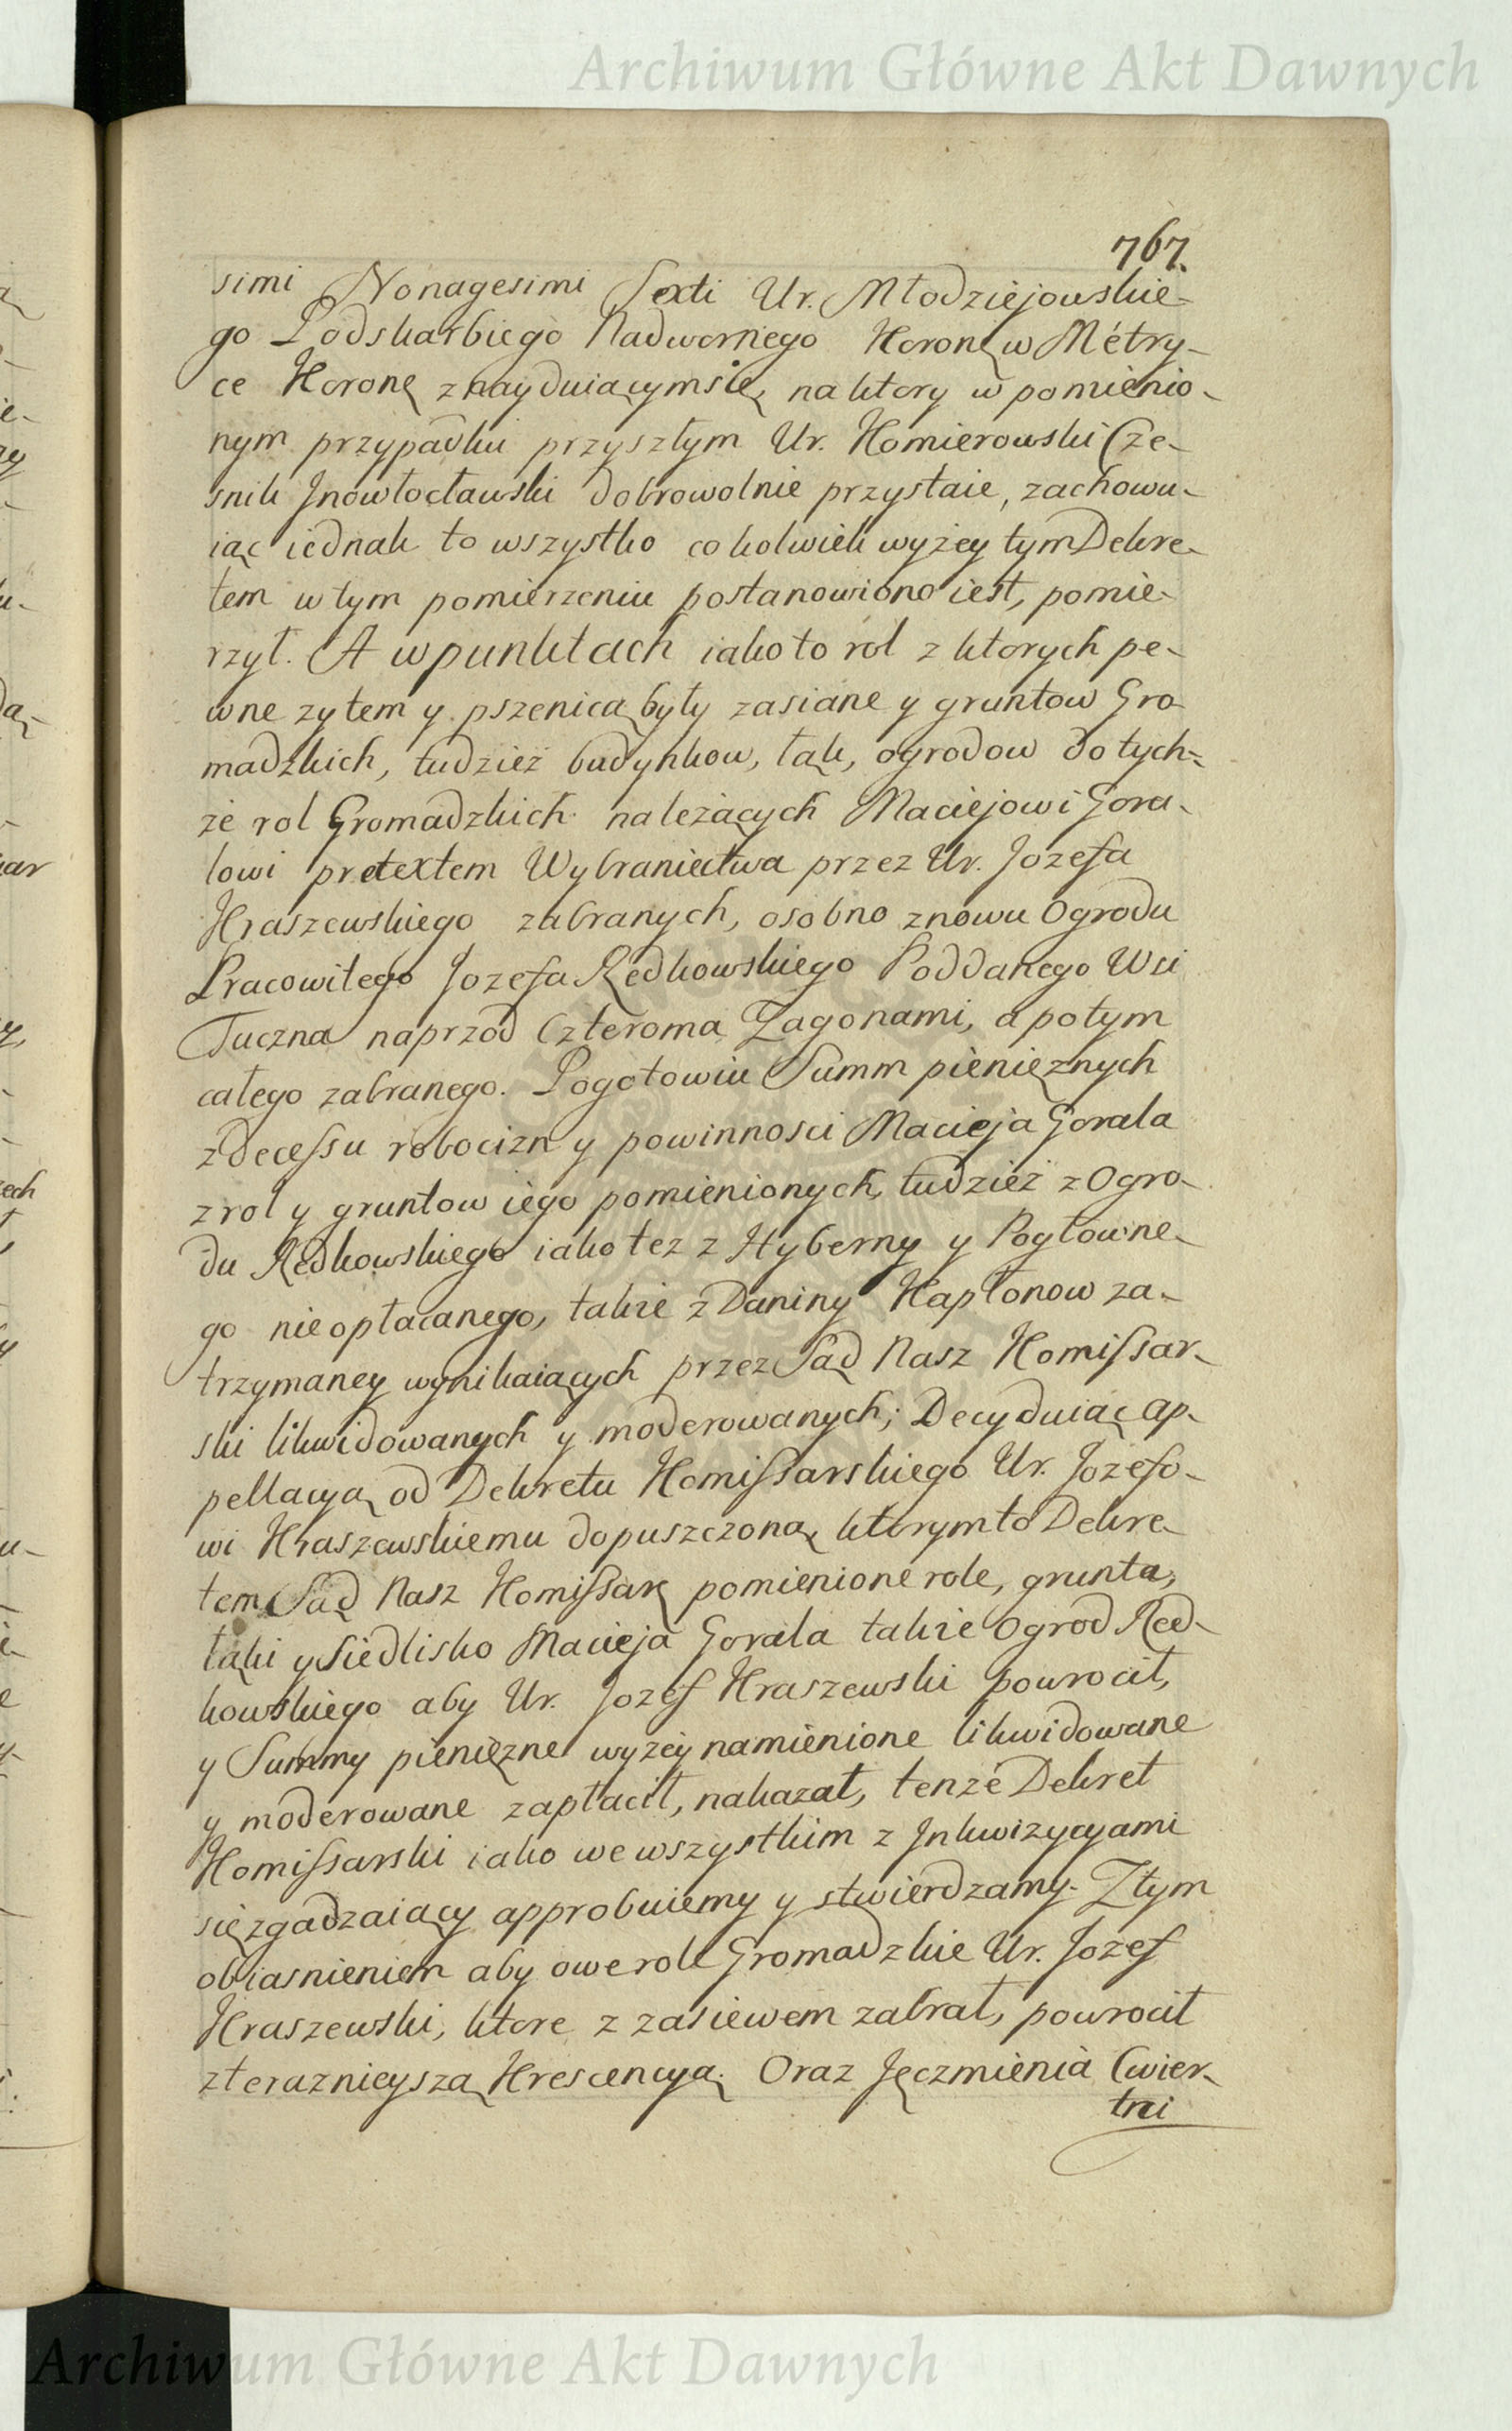 Archiwum Główne Akt Dawnych
767.
simi Nonagesimi Sexti Ur. Młodziejowskie-
go Podskarbiego Nadwornego Koron w Métry-
ce Koron znayduiącymsię, na ktory w pomienio-
nym przypadku przyszłym Ur. Komierowski Cze-
snik Jnowłocławski dobrowolnie przystaie, zachowu-
iąc iednak to wszystko cokolwiek wyżey tym Dekre-
tem w tym pomierzeniu postanowiono iest, pomie-
rzył. A w punktach iako to rol z ktorych pe-
wne zytem y pszenicą były zasiane y gruntow Gro
madzkich, tudzież budynkow, łąk, ogrodow do tych-
że rol Gromadzkich należących Maciejowi Gora-
lowi pretextem Wybraniectwa przez Ur. Jozefa
Kraszewskiego zabranych, osobno znowu Ogrodu
Pracowitego Jozefa Redkowskiego Poddanego Wsi
Tuczna naprzod Czteroma Zagonami, a potym
całego zabranego. Pogotowiu Summ pieniężnych
z Decessu robocizn y powinnosci Macieja Gorala
z rol y gruntow iego pomienionych, tudzież z Ogro-
du Redkowskiego iako tez z Hyberny y Pogłowne-
go nieopłacanego, takie z Daniny Kapłonow za-
trzymaney wynikaiących przez Sąd Nasz Komissar-
ski likwidowanych y moderowanych; Decyduiąc ap-
pellacyą od Dekretu Komissarskiego Ur. Jozefo-
wi Kraszewskiemu dopuszczoną, ktorym to Dekre-
tem Sąd Nasz Komissar pomienione role, grunta,
łąki y Siedlisko Macieja Gorala takie Ogrod Red-
kowskiego aby Ur. Jozef Kraszewski powrocił,
y Summy pieniężne wyzey namienione likwidowane
y moderowane zapłacił, nakazał, tenże Dekret
Komissarski iako we wszystkim z Jnkwizycyami
się zgadzaiący approbuiemy y stwierdzamy. Z tym
obiasnieniem aby owe role Gromadzkie Ur. Jozef
Kraszewski, ktore z zasiewem zabrał, powrocił
z teraznieyszą Krescencyą. Oraz Jęczmienia Cwier-
tni
Archiwum Główne Akt Dawnych